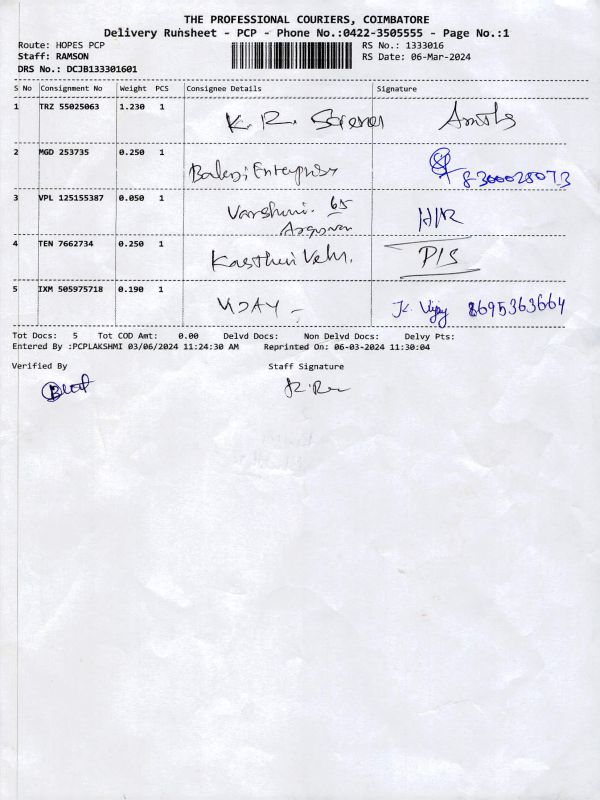 THE PROFESSIONAL COURIERS, COIMBATORE
Delivery Runsheet - PCP - Phone No.:0422-3505555 - Page No.:1
Route: HOPES PCP RS No.: 1333016
Staff: RAMSON RS Date: 06-Mar-2024
DRS No.: DCJB133301601
S No Consignment No Weight PCS Consignee Details Signature
1 TRZ 55025063 1.230 1 K. R.
2 MGD 253735 0.250 1
8300028073
3 VPL 125155387 0.050 1 Varshini. 65 H/R
4 TEN 7662734 0.250 1 P/S
5 IXM 505975718 0.190 1 K. Vijay 8695363664
Tot Docs: 5 Tot COD Amt: 0.00 Delvd Docs: Non Delvd Docs: Delvy Pts:
Entered By :PCPLAKSHMI 03/06/2024 11:24:30 AM Reprinted On: 06-03-2024 11:30:04
Verified By Staff Signature